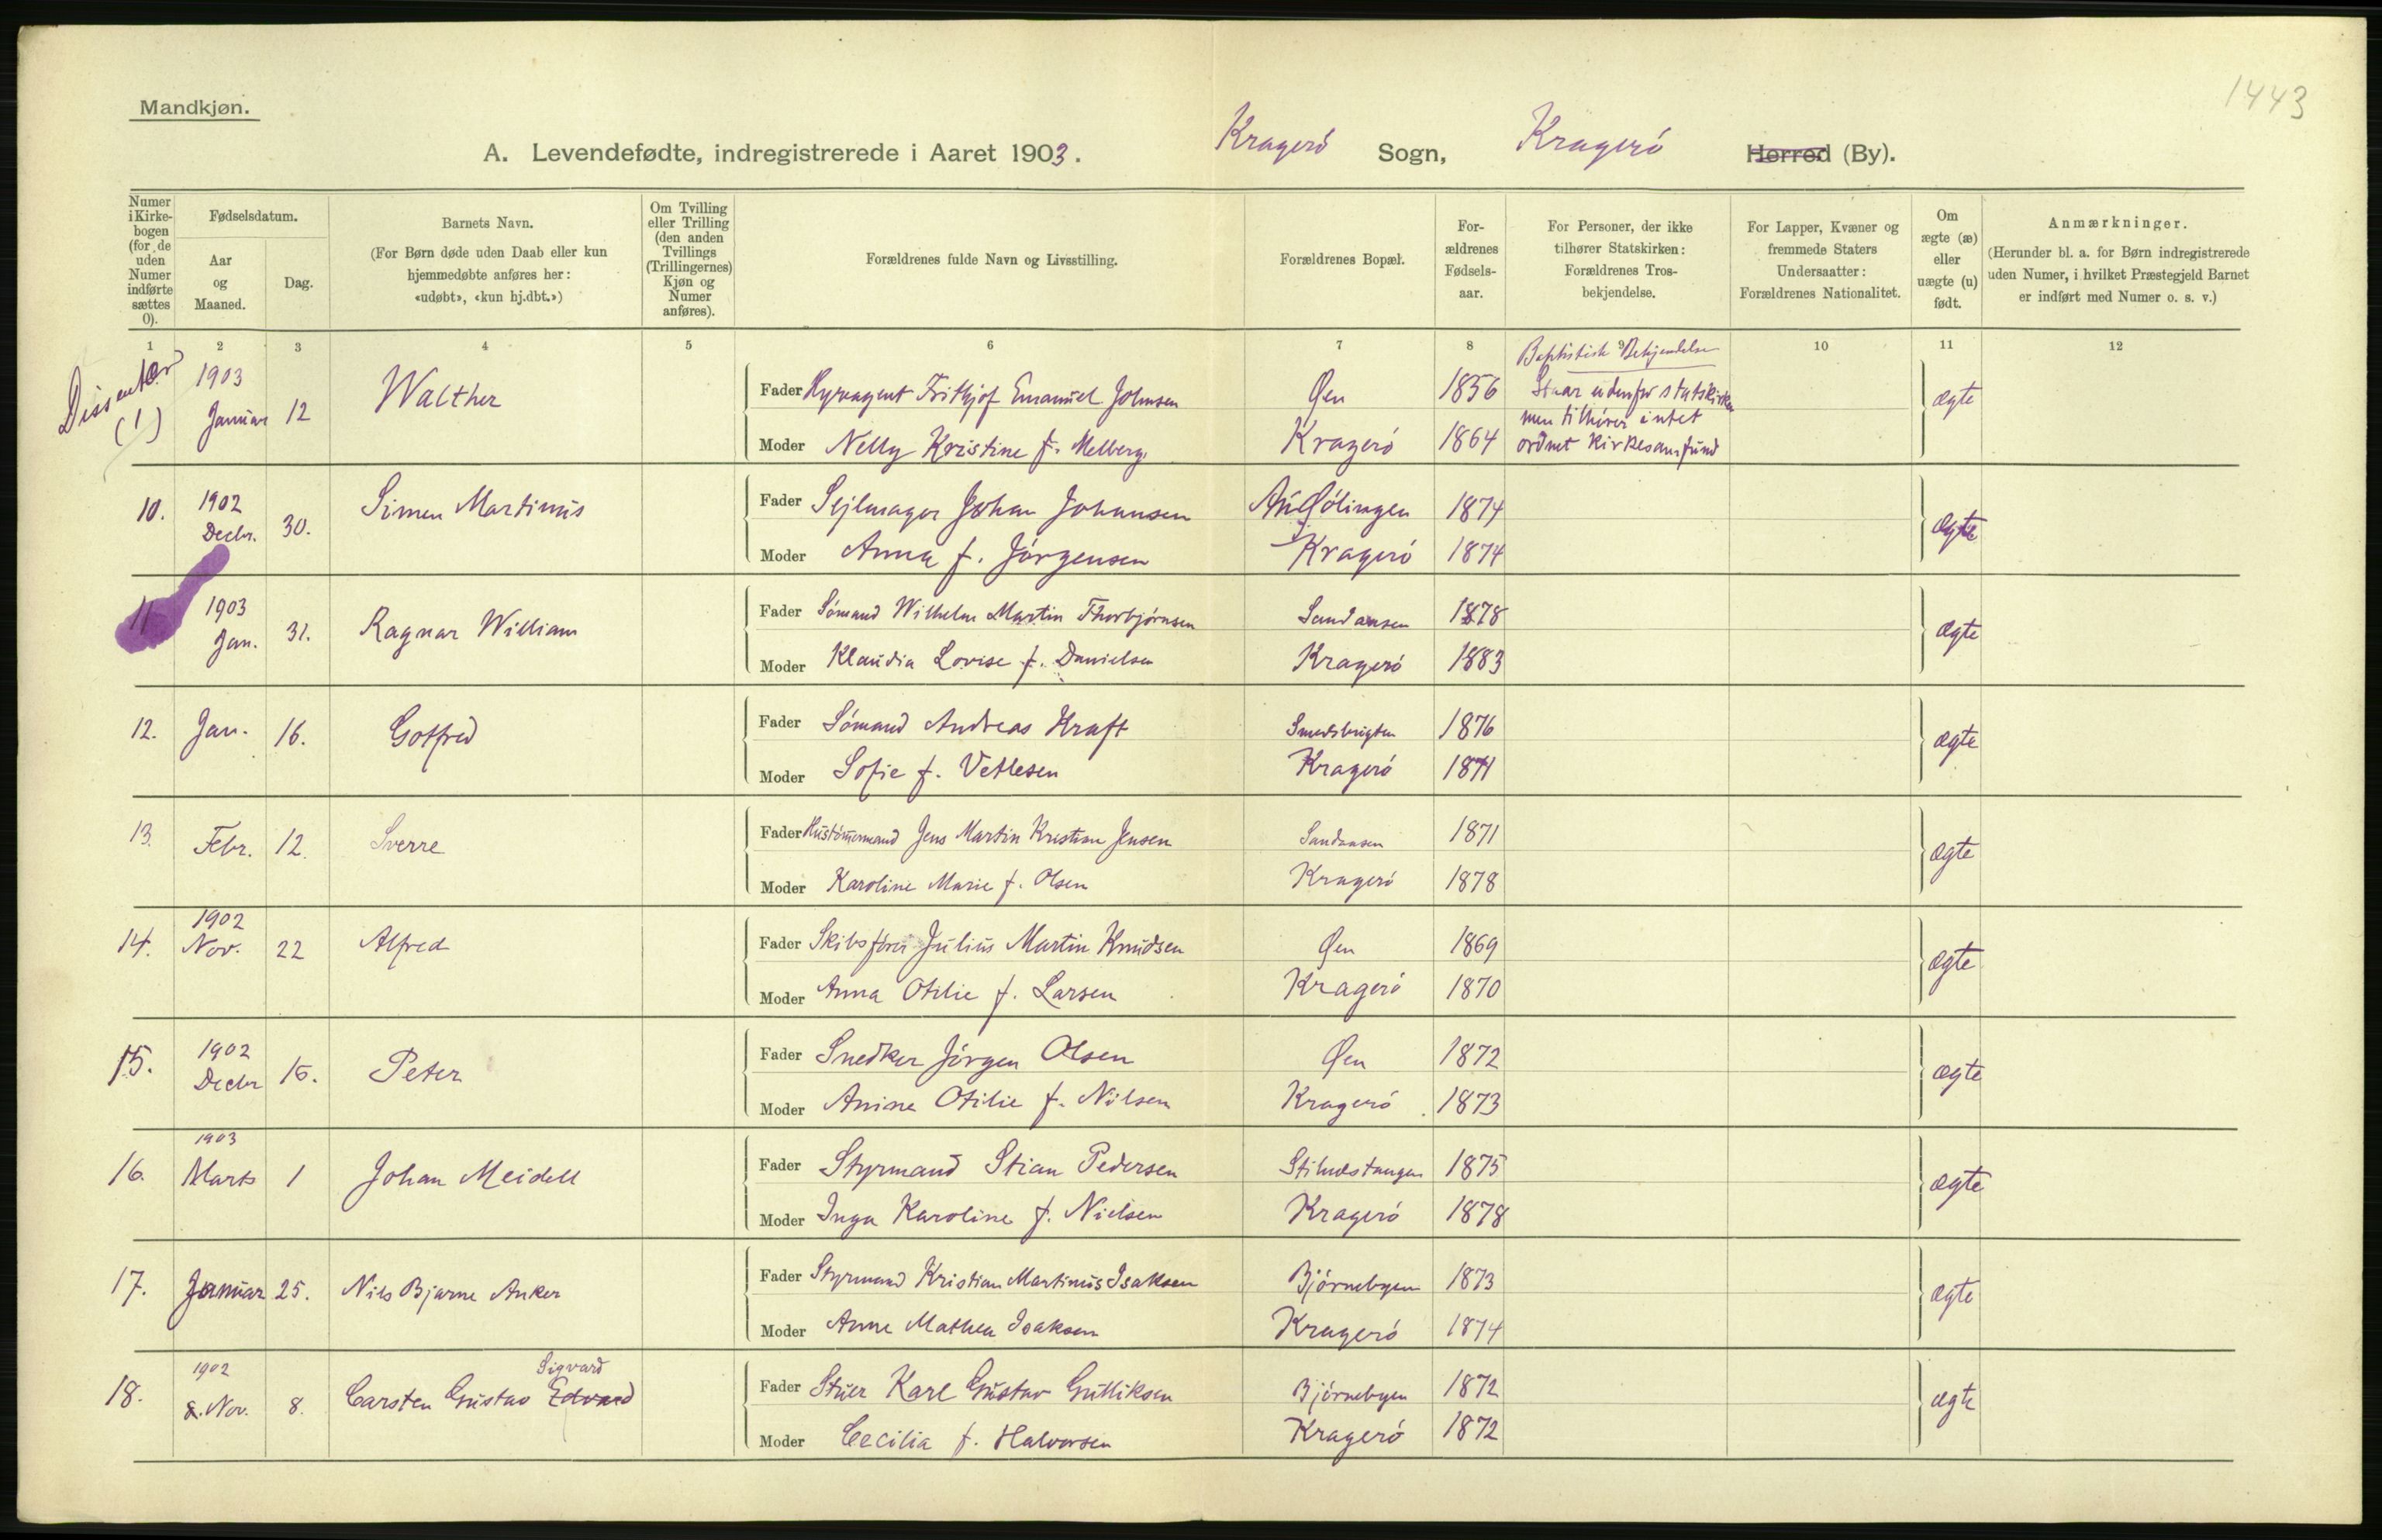 1443
Mandkjøn.
A. Levendefødte, indregistrerede i Aaret 1903. Kragerö Sogn, Kragerö Herred (By).
Numer i Kirke-bogen (for de uden Numer indførte sættes 0).
Fødselsdatum.
Aar og Maaned.
Dag.
Barnets Navn.
(For Børn døde uden Daab eller kun hjemmedøbte anføres her: «udøbt», «kun hj.dbt.»)
Om Tvilling eller Trilling (den anden Tvillings (Trillingernes) Kjøn og Numer anføres).
Forældrenes fulde Navn og Livsstilling.
Forældrenes Bopæl.
For-ældrenes Fødsels-aar.
For Personer, der ikke tilhører Statskirken: Forældrenes Tros-bekjendelse.
For Lapper, Kvæner og fremmede Staters Undersaatter: Forældrenes Nationalitet.
Om ægte (æ) eller uægte (u) født.
Anmærkninger.
(Herunder bl. a. for Børn indregistrerede uden Numer, i hvilket Præstegjeld Barnet er indført med Numer o. s. v.)
1 2 3 4 5 6 7 8 9 10 11 12
Dissenter (1) 1903 Januar 12 Walther
Fader Hyreagent Frithjof Emanuel Johnsen Øen 1856
Moder Nelly Kristine f. Melberg Kragerö 1864
Baptistisk Bekjendelse
Staar udenfor statskirken
men tilhører intet
ordnet kirkesamfund
ægte
10. 1902 Decbr. 30. Simen Martinus
Fader Sejlmager Johan Johansen 1874
Moder Anna f. Jörgensen Kragerö 1874
ægte
11 1903 Jan. 31. Ragnar William
Fader Sömand Wilhelm Martin Thorbjörnsen Sandaasen 1878
Moder Klaudia Lovise f. Danielsen Kragerö 1883
ægte
12. Jan. 16. Gotfred
Fader Sömand Andreas Kraft Smedsbugten 1876
Moder Sofie f. Vetlesen Kragerö 1871
ægte
13. Febr. 12. Sverre
Fader Hustömermand Jens Martin Kristian Jensen Sandaasen 1871
Moder Karoline Marie f. Olsen Kragerö 1878
ægte
14. 1902 Nov. 22 Alfred
Fader Skibsförer Julius Martin Knudsen Øen 1869
Moder Anna Otilie f. Larsen Kragerö 1870
ægte
15. 1902 Decbr 15. Peter
Fader Snedker Jörgen Olsen Øen 1872
Moder Anine Otilie f. Nilsen Kragerö 1873
ægte
16. 1903 Marts 1 Johan Meidell
Fader Styrmand Stian Pedersen Stilnestangen 1875
Moder Inga Karoline f. Nielsen Kragerö 1878
ægte
17. Januar 25. Nils Bjarne Anker
Fader Styrmand Kristian Martinus Isaksen Björnebyen 1873
Moder Anne Mathea Isaksen Kragerö 1874
ægte
18. 1902 8. Nov. 8. Carsten Gustav Edvard Sigvard
Fader Stuer Karl Gustav Gulliksen Björnebyen 1872
Moder Cecilia f. Halvorsen Kragerö 1872
ægte